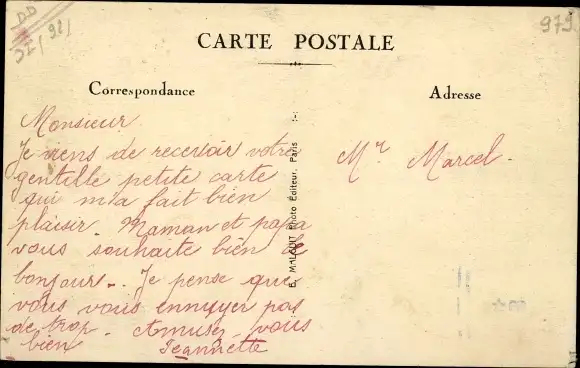 DD
979
CARTE POSTALE
Correspondance
Adresse
Monsieur
Je viens de recevoir votre
gentille petite carte
qui m'a fait bien
plaisir. Maman et papa
vous souhaite bien le
bonjour.. Je pense que
vous vous ennuyer pas
de trop. Amusez vous
bien Jeannette
E. MALCUIT Photo Editeur, Paris
Mr Marcel.